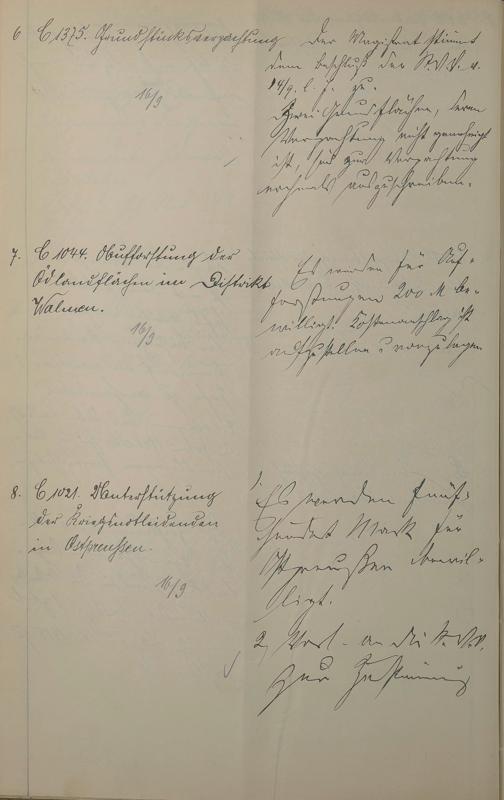 6 C 1375. Grundstücksverpachtung
16/9
Der Magistrat stimmt
dem Beschluß der St.V.V. v.
14/9. l. J. zu.
Zwei Grundflächen, deren
Verpachtung nicht genehmigt
ist, sind zur Verpachtung
nochmals auszuschreiben.
7. C 1044. Aufforstung der
Ödlandflächen im Distrikt
Walmen.
16/9
Es werden für Auf-
forstungen 200 M be-
willigt. Kostenanschlag ist
aufzustellen u vorzulegen
8. C 1021. Unterstützung
der Kriegsnotleidenden
in Ostpreussen.
16/9
1, Es werden fünf-
hundert Mark für
Ostpreußen bewil-
ligt.
2, Vorl. an die St.V.V.
zur Zustimmung